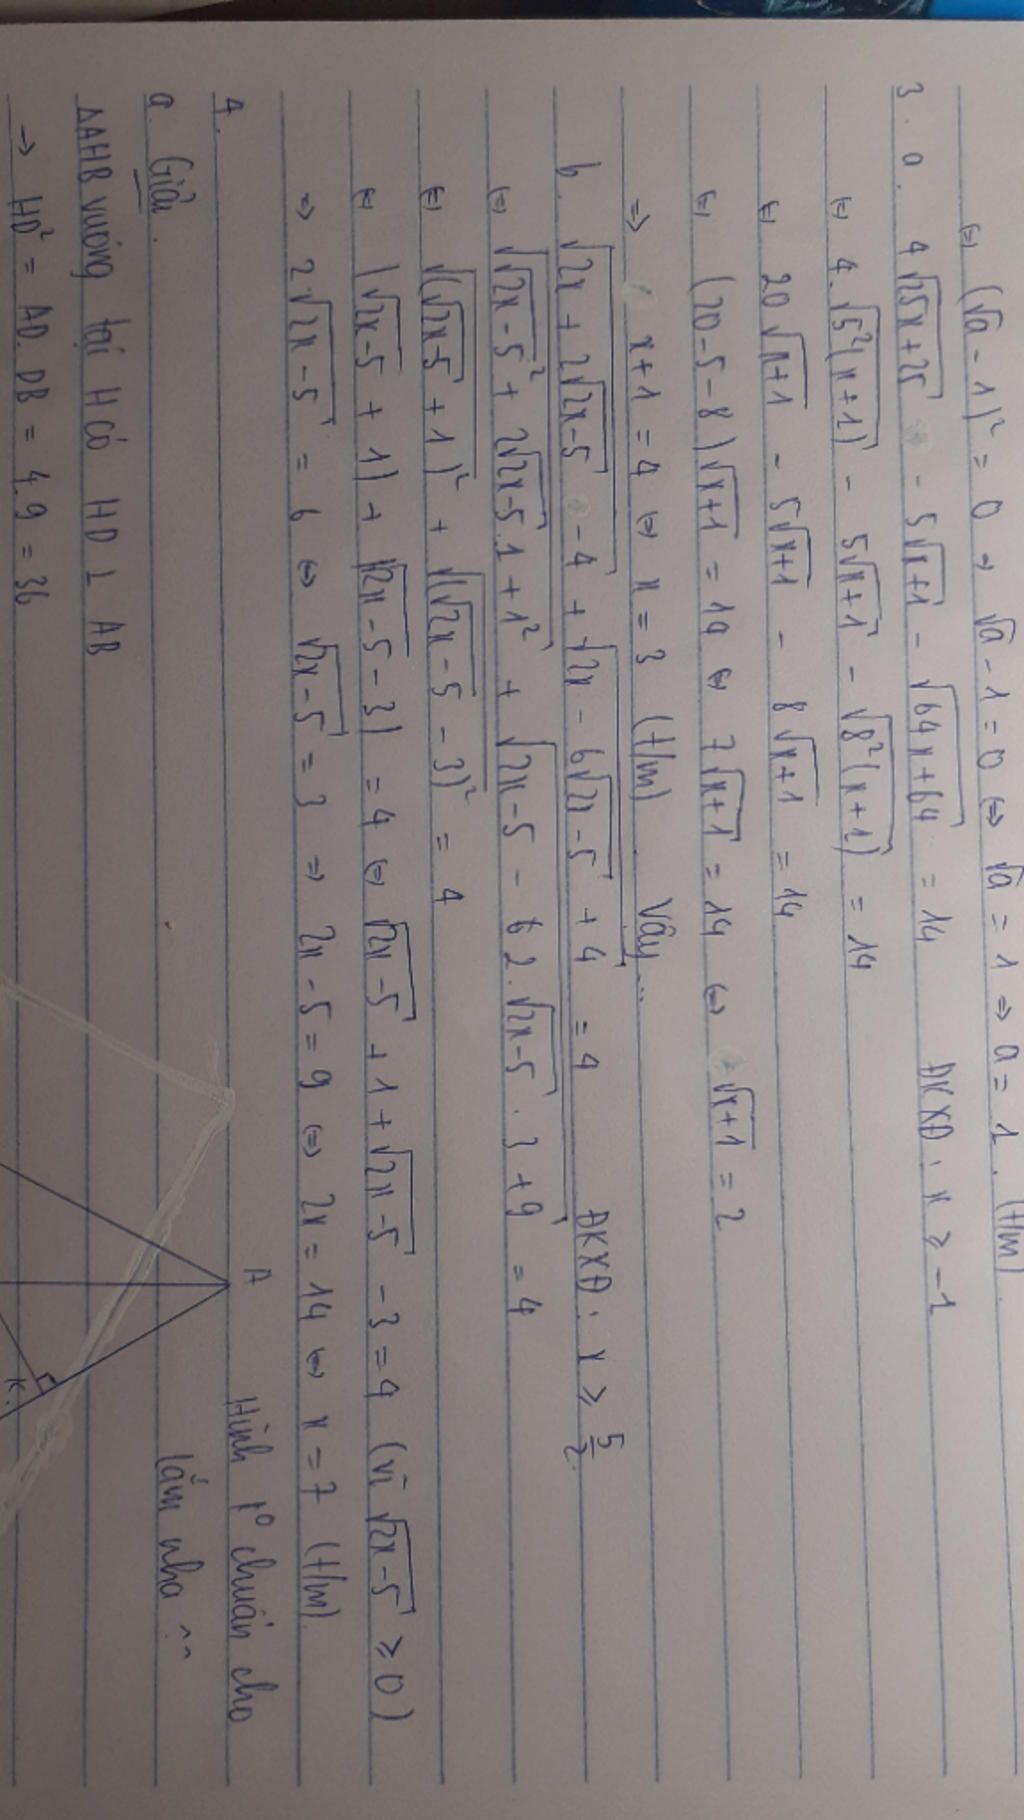 ⇔ (√a - 1)² = 0 ⇒ √a - 1 = 0 ⇔ √a = 1 ⇒ a = 1. (t/m)
3. a. 4√(25x+25) - 5√(x+1) - √(64x+64) = 14 ĐKXĐ: x ≥ -1
⇔ 4.√(5²(x+1)) - 5√(x+1) - √(8²(x+1)) = 14
⇔ 20√(x+1) - 5√(x+1) - 8√(x+1) = 14
⇔ (20-5-8)√(x+1) = 14 ⇔ 7√(x+1) = 14 ⇔ √(x+1) = 2
⇒ x+1 = 4 ⇔ x = 3 (t/m) Vậy...
b. √(2x + 2√(2x-5) - 4) + √(2x - 6√(2x-5) + 4) = 4 ĐKXĐ: x ≥ 5/2.
⇔ √(√(2x-5)² + 2√(2x-5).1 + 1²) + √(2x-5 - 6 2.√(2x-5).3 + 9) = 4
⇔ √((√(2x-5) + 1)²) + √((√(2x-5) - 3)²) = 4
⇔ |√(2x-5) + 1| + |√(2x-5) - 3| = 4 ⇔ √(2x-5) + 1 + √(2x-5) - 3 = 4 (vì √(2x-5) ≥ 0)
⇒ 2.√(2x-5) = 6 ⇔ √(2x-5) = 3 ⇒ 2x-5 = 9 ⇔ 2x = 14 ⇔ x = 7 (t/m).
4. A Hình k° chuẩn cho
a. Giải. lắm nha ^^
ΔAHB vuông tại H có HD ⊥ AB
→ HD² = AD.DB = 4.9 = 36
K